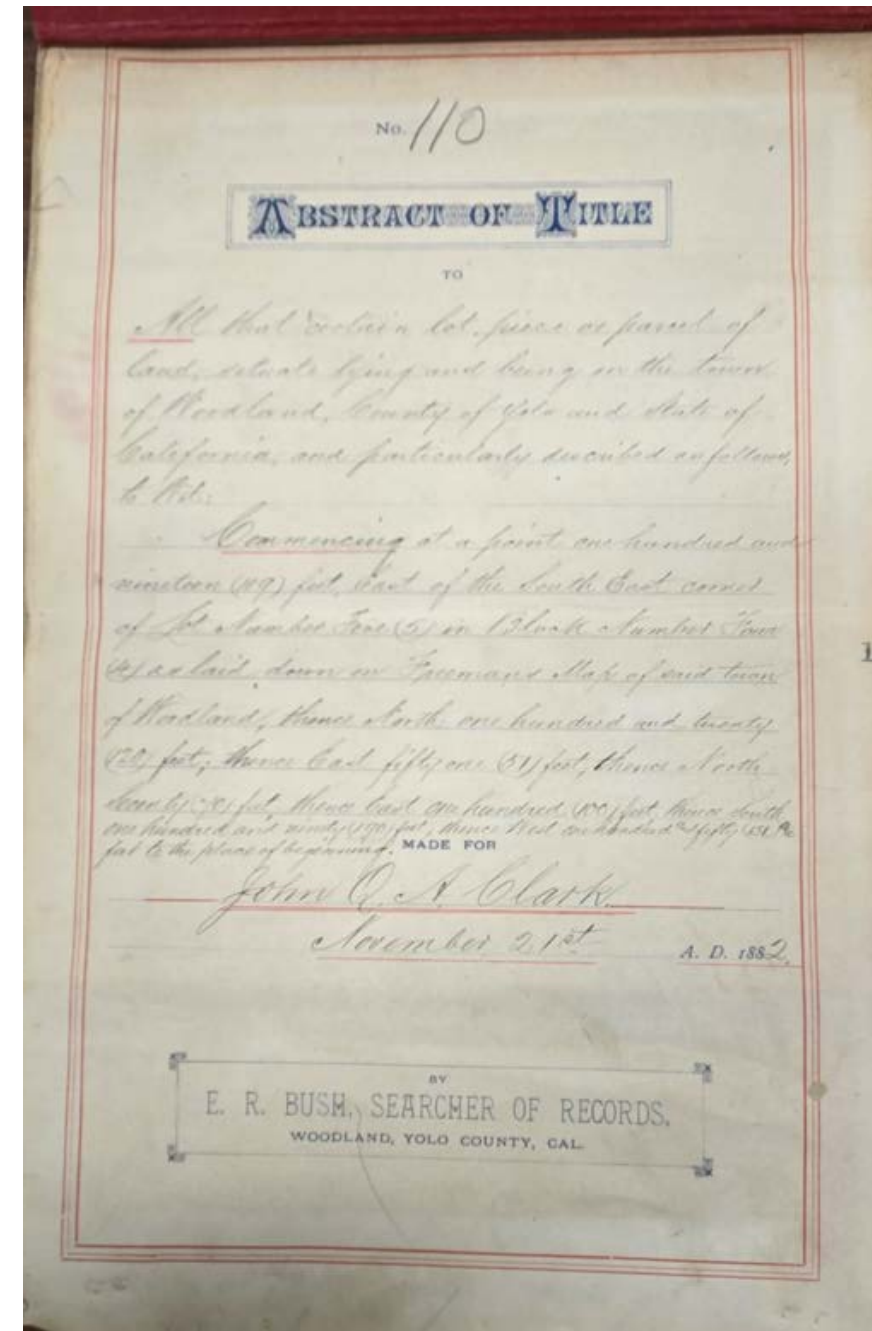 No. 110
ABSTRACT OF TITLE
TO
All that certain lot, piece or parcel of
land, situate lying and being in the town
of Woodland, County of Yolo and State of
California, and particularly described as follows,
to Wit:
Commencing at a point one hundred and
nineteen (119) feet, east of the South East corner
of Lot Number Five (5) in Block Number Four
(4) as laid down on Freemans Map of said town
of Woodland, thence North one hundred and twenty
(120) feet; thence East fifty one (51) feet, thence North
Seventy (70) feet, thence East one hundred (100) feet, thence South
one hundred and ninety (190) feet, thence West one hundred and fifty
feet to the place of beginning.
MADE FOR
John Q. A. Clark.
November 21st A. D. 1882.
BY
E. R. BUSH, SEARCHER OF RECORDS,
WOODLAND, YOLO COUNTY, CAL.
1